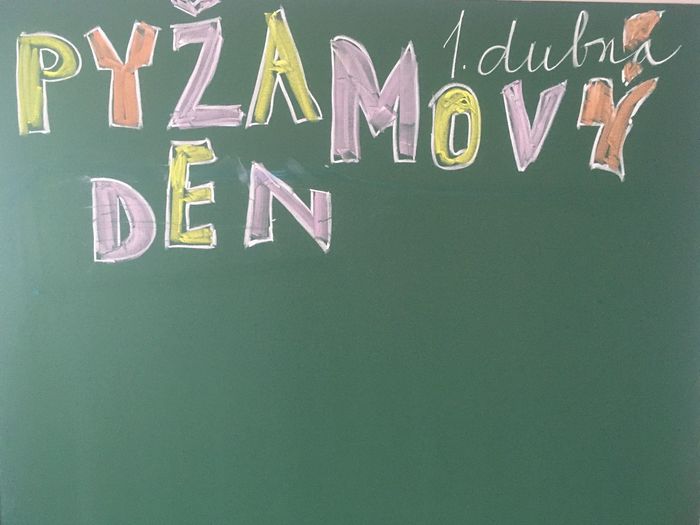 PYŽAMOVÝ
1. dubna
DEN